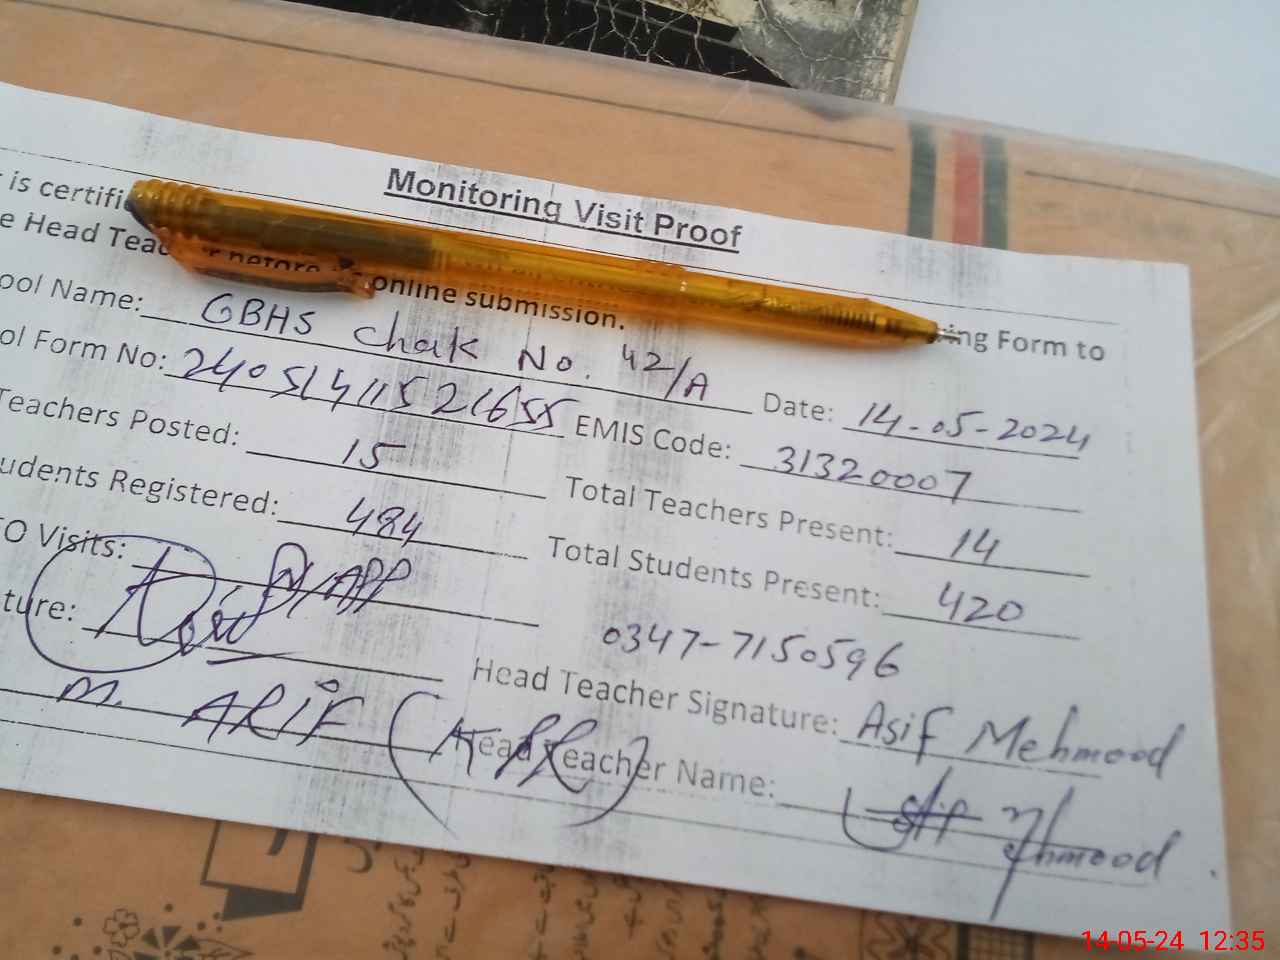 Monitoring Visit Proof
is certifi
e Head Teac before online submission. ing Form to
ool Name: GBHS Chak No. 42/A Date: 14-05-2024
ol Form No: 24051411521655 EMIS Code: 31320007
Teachers Posted: 15 Total Teachers Present: 14
udents Registered: 484 Total Students Present: 420
O Visits:
0347-7150596
ture: Head Teacher Signature: Asif Mehmood
M. ARIF Head Teacher Name: Mehmood
14-05-24 12:35